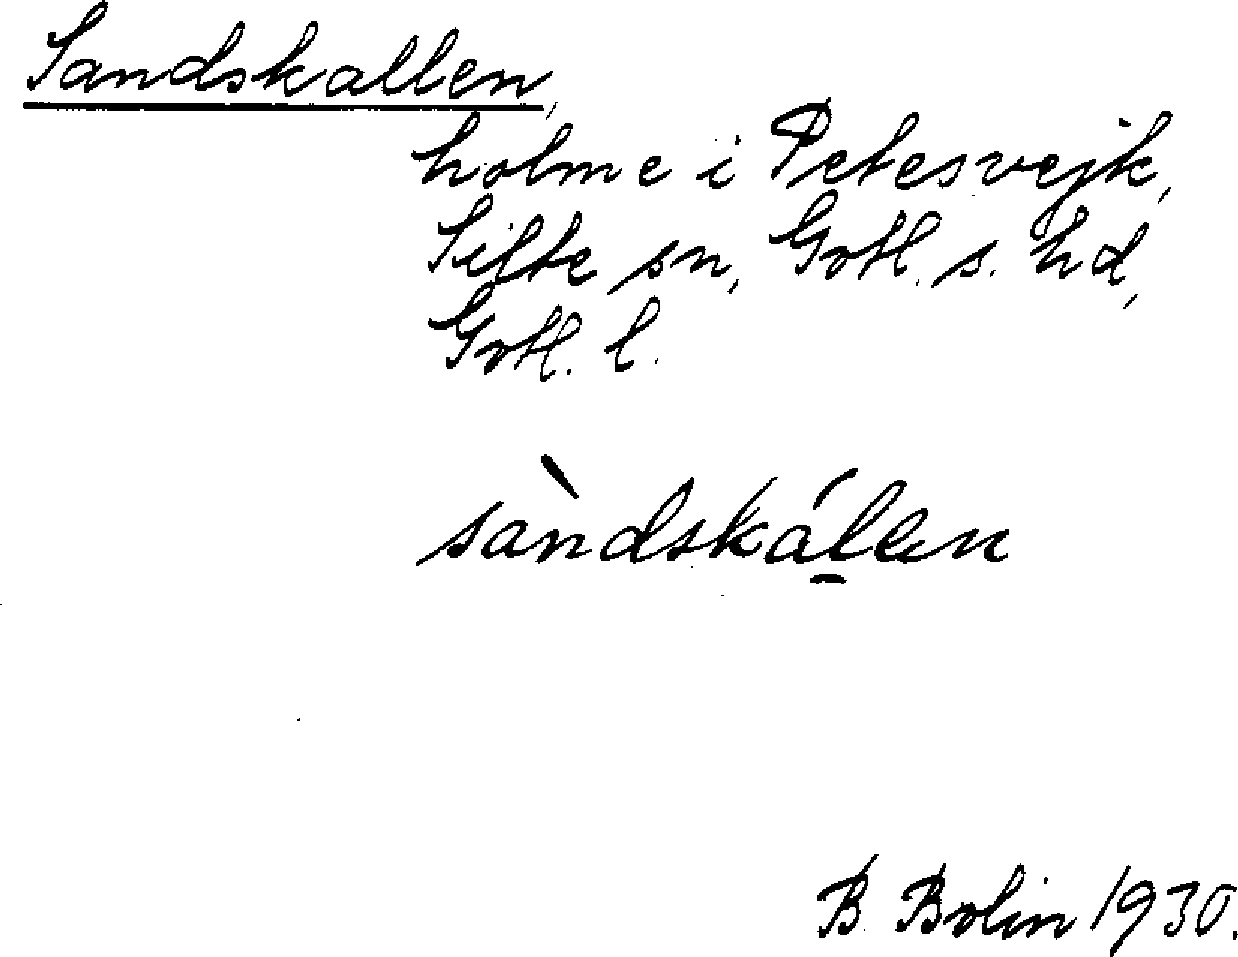 Sandskallen,
holme i Petesvejk,
Silte sn, Gotl. s. hd,
Gotl. l.
sàndskál̲en
B Bolin 1930.